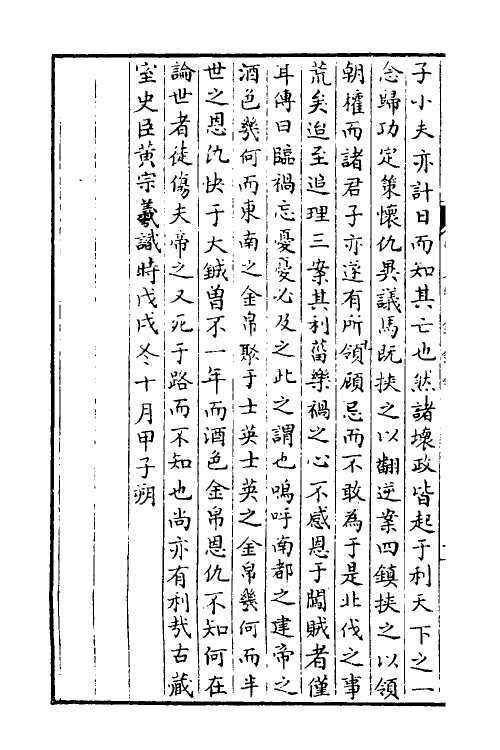 子小夫亦計日而知其亡也然諸壞政皆起于利天下之一
念歸功定策懷仇異議馬阮挾之以翻逆案四鎮挾之以領
朝權而諸君子亦遂有所領顧忌而不敢為于是北伐之事
荒矣迨至追理三案其利菑樂禍之心不感恩于闖賊者僅
耳傳曰臨禍忘憂憂必及之此之謂也嗚呼南都之建帝之
酒色幾何而東南之金帛聚于士英士英之金帛幾何而半
世之恩仇快于大鋮曾不一年而酒色金帛恩仇不知何在
論世者徒傷夫帝之又死于路而不知也尚亦有利𢦏古藏
室史臣黃宗羲識時戊戌冬十月甲子朔